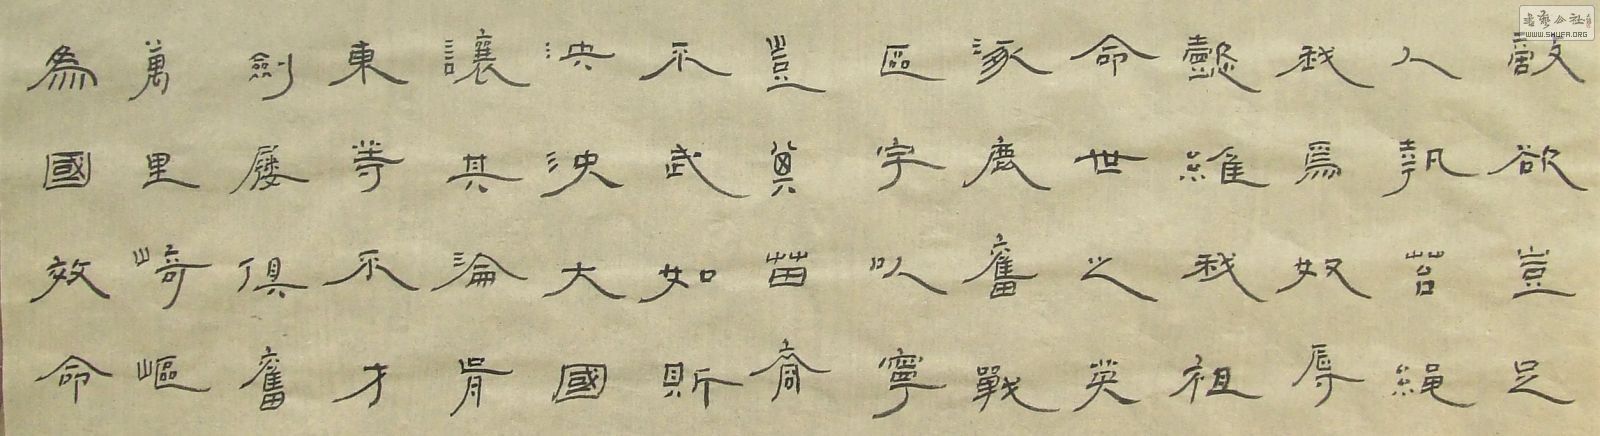 敵欲豈足
人執笞繩
我爲奴辱
懿維我祖
命世之英
涿鹿奮戰
區宇以寧
豈其苗裔
不武如斯
泱泱大國
讓其淪胥
東等不才
劍屨俱奮
萬里崎嶇
為國效命
書藝公社
WWW.SHUFA.ORG